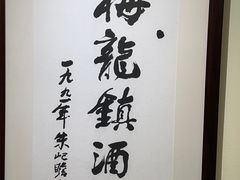 梅龍鎮酒
一九九一年朱屺瞻